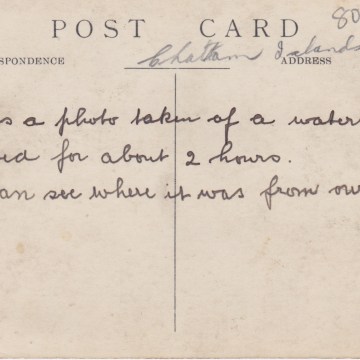 POST CARD 80
Chattam Islands
SPONDENCE ADDRESS
s a photo taken of a water
ed for about 2 hours.
an see where it was from our